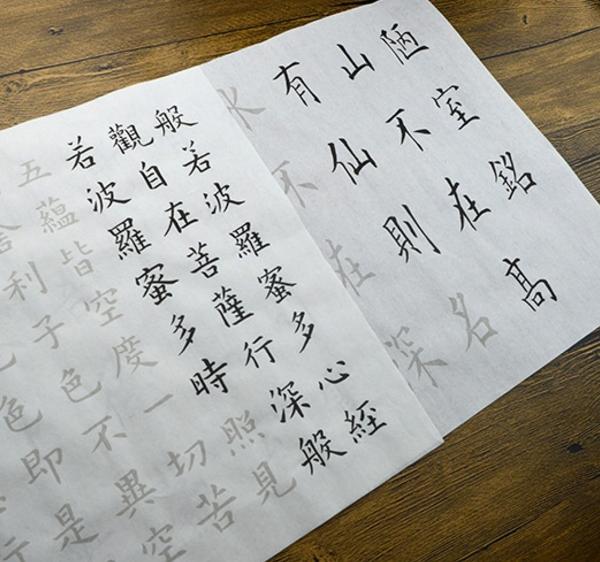 陋室銘
山不在高
有仙則名
水不在深
般若波羅蜜多心經
觀自在菩薩行深般
若波羅蜜多時照見
五蘊皆空度一切苦
舍利子色不異空
色即是